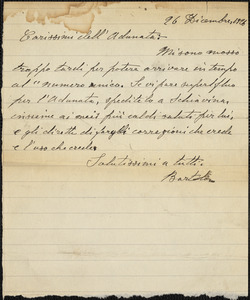 26 Dicembre, 1926
Carissimi dell'Adunata:
Mi sono mosso
troppo tardi per potere arrivare in tempo
al "numero unico. Se vi pare superfluo
per l'Adunata, speditelo a Schiavina,
insieme ai miei più caldi saluti per lui,
e gli direte di fargli correzioni che crede
e l'uso che crede.
Salutissimi a tutti.
Bartolo